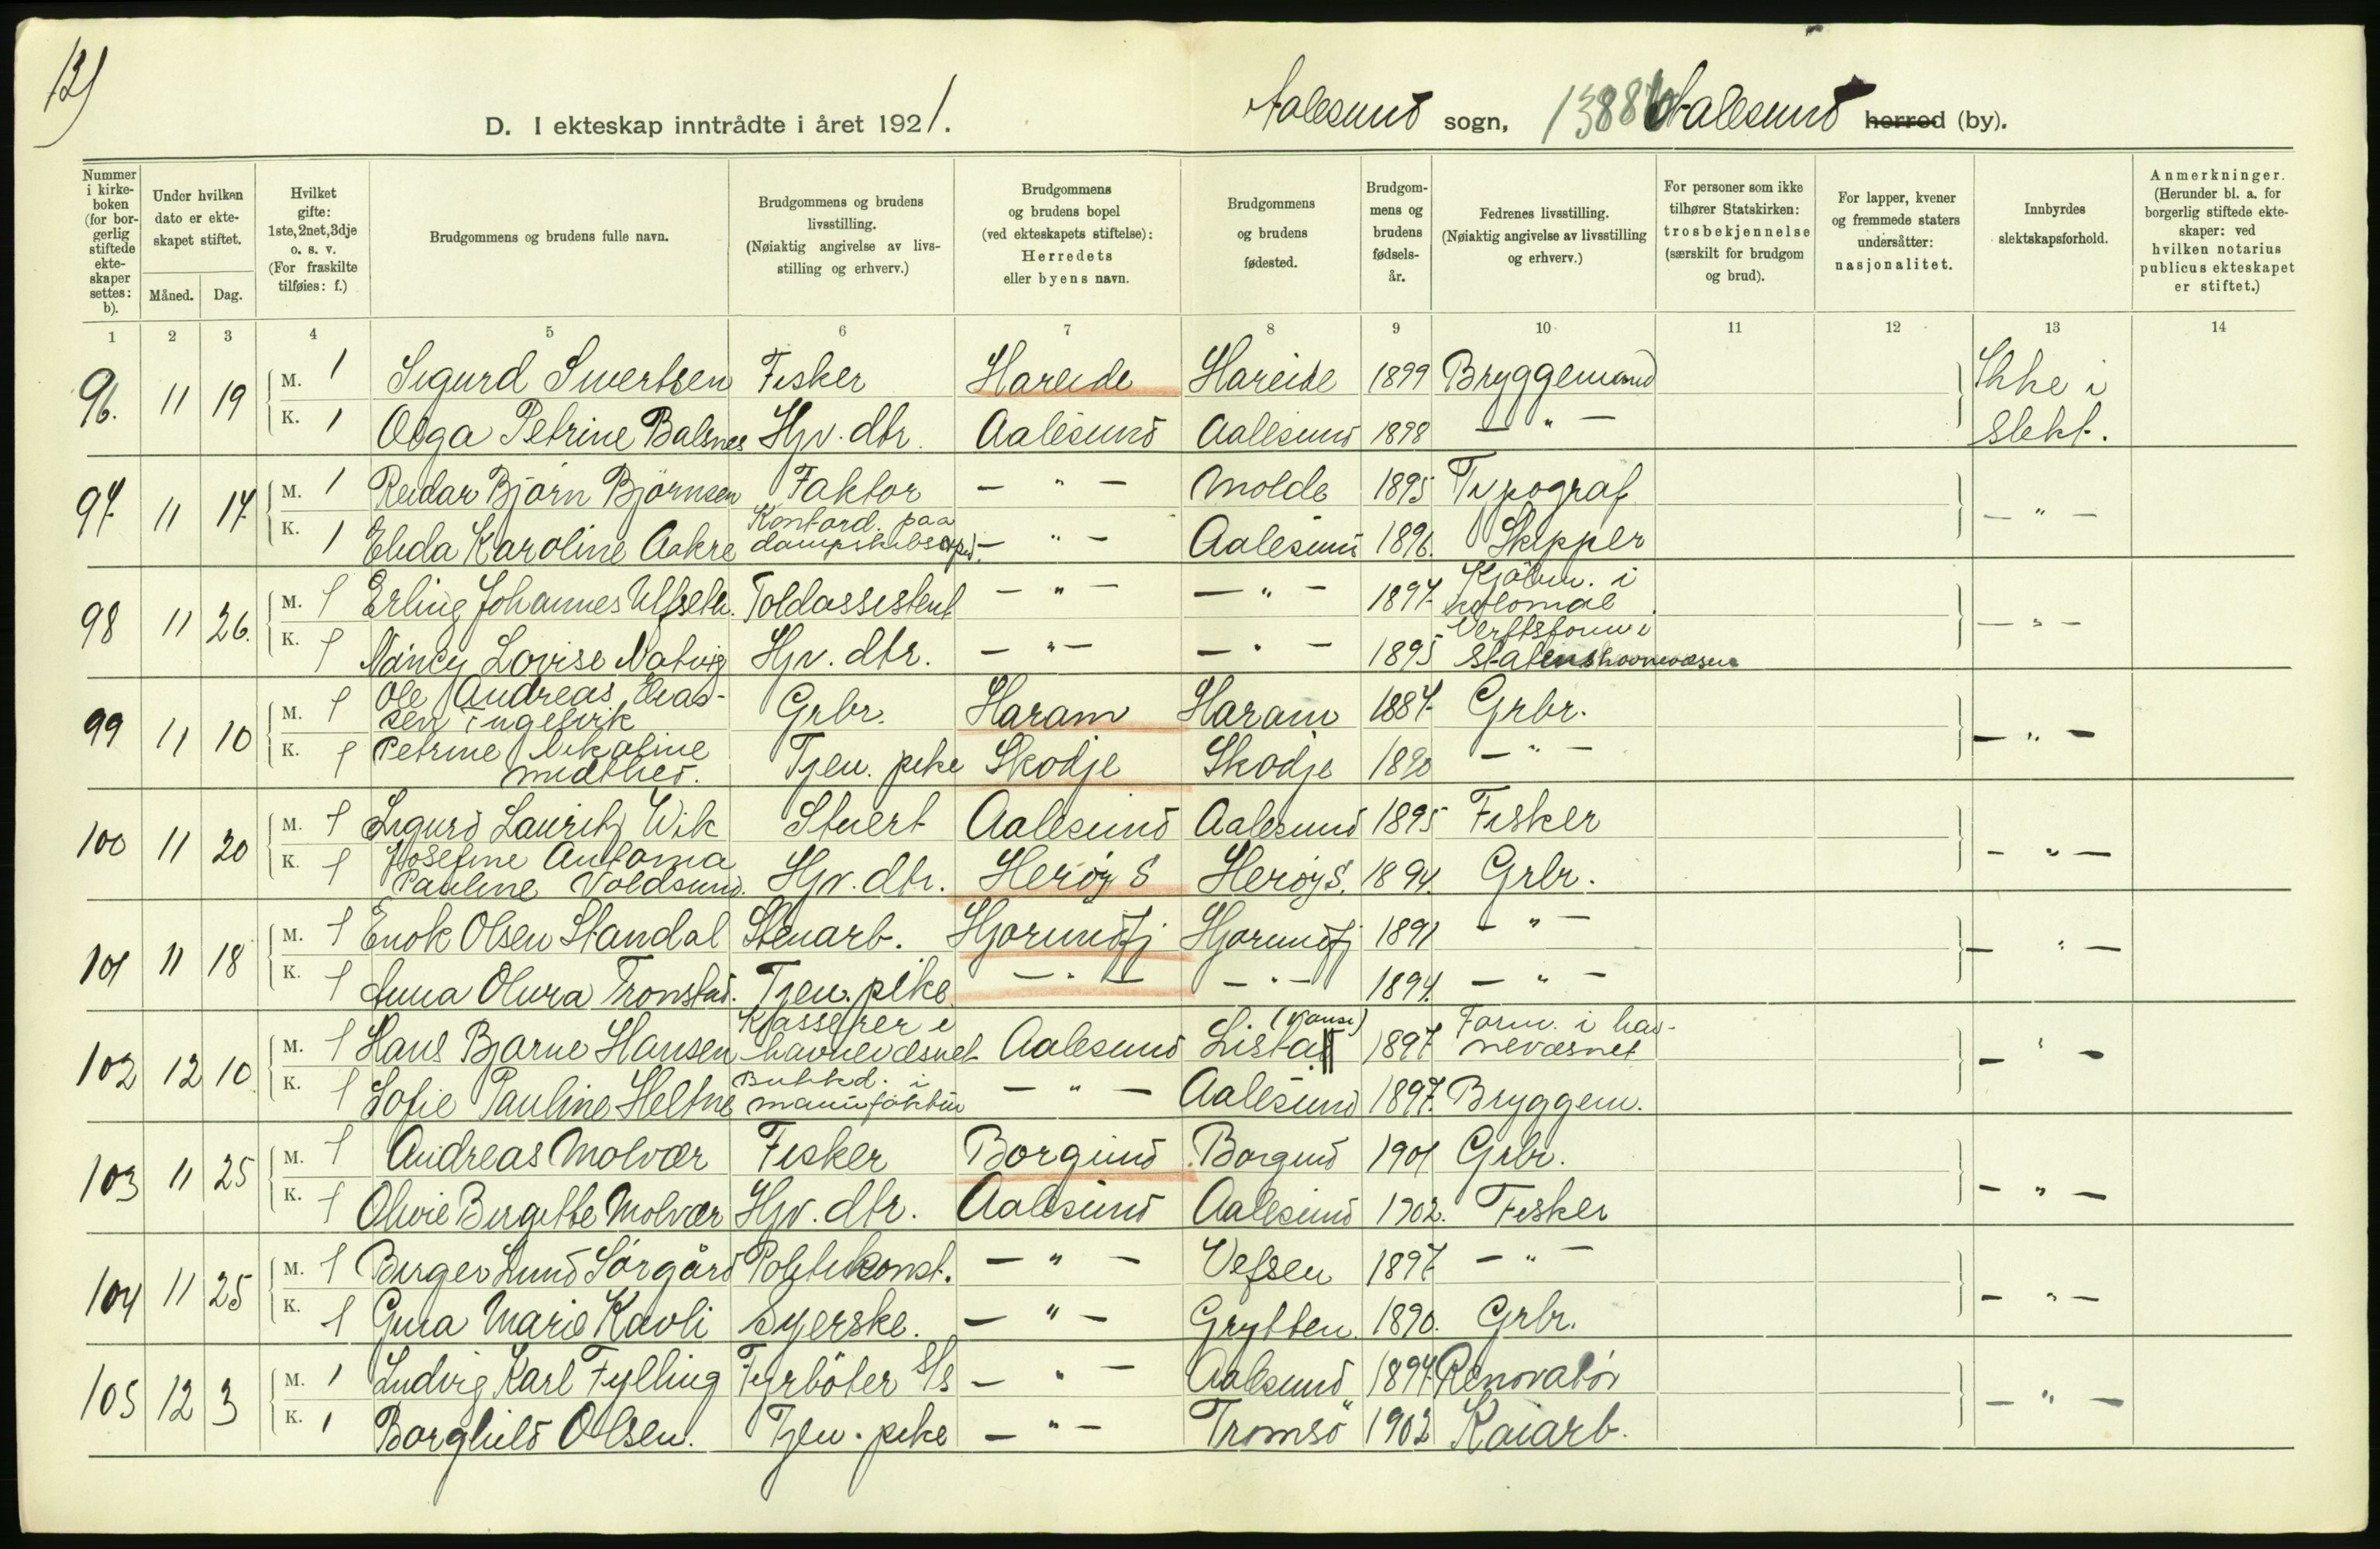 12)
D. I ekteskap inntrådte i året 1921.
Aalesund sogn, 1388 Aalesund herred (by).
Nummer i kirkeboken (for borgerlig stiftede ekteskaper settes: b).
Under hvilken dato er ekteskapet stiftet.
Måned. Dag.
Hvilket gifte: 1ste, 2net, 3dje o. s. v. (For fraskilte tilføies: f.)
Brudgommens og brudens fulle navn.
Brudgommens og brudens livsstilling. (Nøiaktig angivelse av livsstilling og erhverv.)
Brudgommens og brudens bopel (ved ekteskapets stiftelse): Herredets eller byens navn.
Brudgommens og brudens fødested.
Brudgommens og brudens fødselsår.
Fedrenes livsstilling. (Nøiaktig angivelse av livsstilling og erhverv.)
For personer som ikke tilhører Statskirken: trosbekjennelse (særskilt for brudgom og brud).
For lapper, kvener og fremmede staters undersåtter: nasjonalitet.
Innbyrdes slektskapsforhold.
Anmerkninger. (Herunder bl. a. for borgerlig stiftede ekteskaper: ved hvilken notarius publicus ekteskapet er stiftet.)
1 2 3 4 5 6 7 8 9 10 11 12 13 14
96. 11 19 M. 1 Sigurd Sivertsen Fisker Hareide Hareide 1899 Bryggemand Ikke i
K. 1 Olga Petrine Balsnes Hjv. dtr. Aalesund Aalesund 1898 — " — slekt.
97 11 17 M. 1 Reidar Bjørn Bjørnsen Faktor — " — Molde 1895 Typograf — " —
K. 1 Elida Karoline Aakre Kontord. paa dampskibsexped. — " — Aalesund 1896. Skipper
98 11 26. M. 1 Erling Johannes Ulfseth. Toldassistent — " — — " — 1897 Kjøbm. i kolonial — " —
K. 1 Nancy Lovise Natvig Hjv. dtr. — " — — " — 1895 Verftsform i Statens havnevæsen
99 11 10 M. 1 Ole Andreas Elias-
sen Tingelvik Grbr. Haram Haram 1887 Grbr. — " —
K. 1 Petrine Nikoline
Midthed. Tjen. pike Skodje Skodje 1890 — " —
100 11 20 M. 1 Sigurd Lauritz Wik Stuert Aalesund Aalesund 1895 Fisker — " —
K. 1 Josefine Antonia
Pauline Voldsund. Hjv. dtr. Herøy S Herøy S. 1894. Grbr.
101 11 18 M. 1 Enok Olsen Standal Stenarb. Hjørundfj Hjørundfj 1891 — " — — " —
K. 1 Anna Olivia Tronstad. Tjen. pike — " — — " — 1894. — " —
102 12 10 M. 1 Hans Bjarne Hansen Kasserer i havnevæsnet Aalesund Lista (Vanse) 1897 Form. i hav-
nevæsnet — " —
K. 1 Sofie Pauline Heltne Butikd. i manufaktur — " — Aalesund 1897. Bryggem.
103 11 25 M. 1 Andreas Molvær Fisker Borgund Borgund 1901 Grbr. — " —
K. 1 Olivie Bergitte Molvær Hjv. dtr. Aalesund Aalesund 1902. Fisker
104 11 25 M. 1 Birger Lund Sørgård Politikonst. — " — Vefsen 1897 — " — — " —
K. 1 Gina Marie Kavli Syerske. — " — Grytten. 1890. Grbr.
105 12 3 M. 1 Ludvig Karl Fylling Fyrbøter S/S — " — Aalesund 1894 Renovatør — " —
K. 1 Borghild Olsen. Tjen. pike — " — Tromsø 1902 Kaiarb.